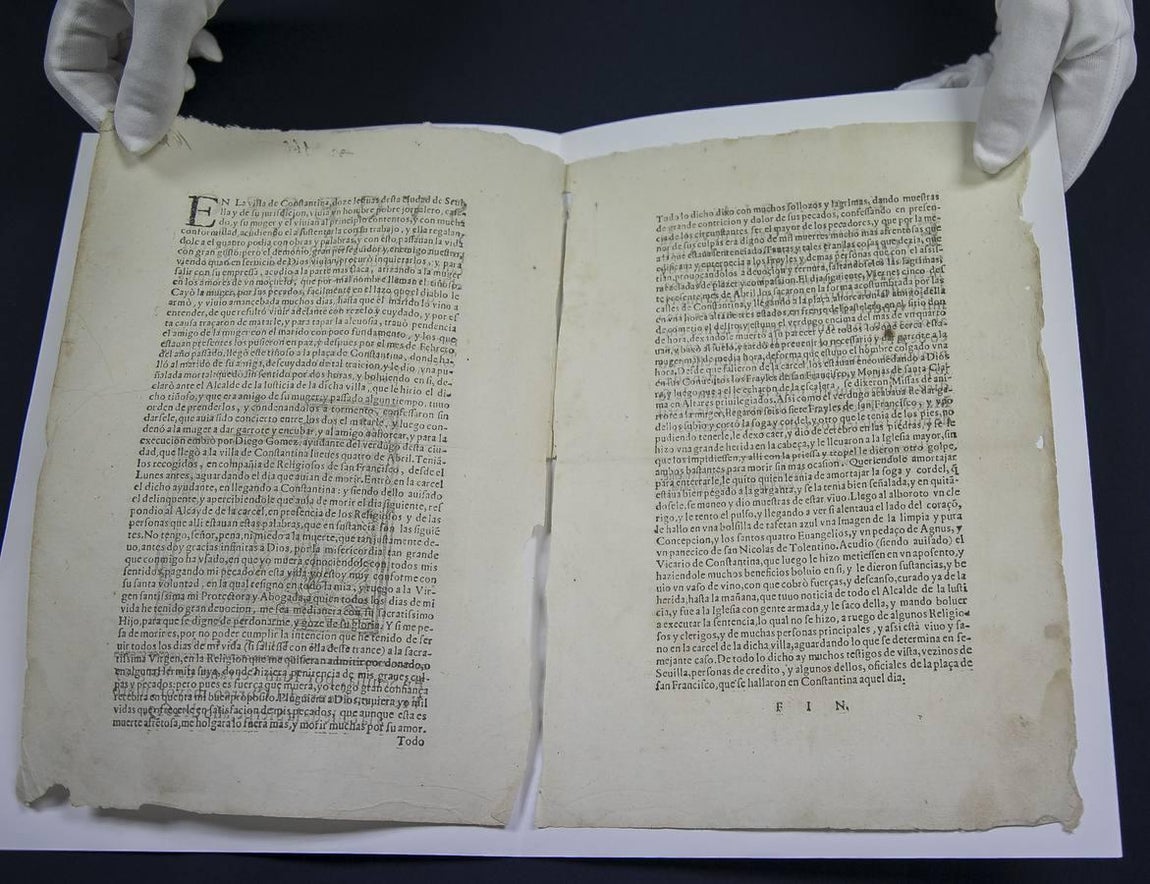 EN La villa de Constantina, doze leguas desta ciudad de Seui
lla y de su jurisdicion, viuia vn hombre pobre jornalero, casa-
do, y su muger y el viuian al principio contentos, y con mucha
conformidad, acudiendo el a sustentarla con su trabajo, y ella regalan-
dole a el quatro podia con obras y palabras, y con esto passauan la vida
con gran gusto; pero el demonio, gran perseguidor y enemigo nuestro,
viendo quan en seruicio de Dios viuian, procurò inquietarlos, y para
salir con su empresa, acudio a la parte mas flaca, atizando a la muger
en los amores de vn moçuelo, que por mal nombre llaman el tiñoso.
Cayò la muger, por sus pecados, facilmente en el lazo que el diablo le
armò, y viuio amancebada muchos dias, hasta que el marido lo vino a
entender, de que resultò viuir adelante con rezelo y cuydado, y por es
ta causa traçaron de matarle, y para tapar la aleuosia, trauò pendencia
el amigo de la muger con el marido con poco fundamento, y los que
estauan presentes los pusieron en paz, y despues por el mes de Febrero
del año passado, llegò este tiñoso a la plaça de Constantina, donde ha-
llò al marido de su amiga, descuydado de tal traicion, y le dio vna pu-
ñalada mortal quedò sin sentido por dos horas, y boluiendo en si, de-
clarò ante el Alcalde de la Iusticia de la dicha villa, que le hirio el di-
cho tiñoso, y que era amigo de su muger; y passado algun tiempo, tuuo
orden de prenderlos, y condenandolos a tormento, confessaron sin
darsele, que auia sido concierto entre los dos el matarle, y luego con-
denò a la muger a dar garrote y encubar, y al amigo a ahorcar, y para la
execucion embiò por Diego Gomez, ayudante del verdugo desta ciu-
dad, que llegò a la villa de Constantina Iueues quatro de Abril. Tenia-
los recogidos, en compañia de Religiosos de san Francisco, desde el
Lunes antes, aguardando el dia que auian de morir. Entrò en la carcel
el dicho ayudante, en llegando a Constantina: y siendo dello auisado
el delinquente, y apercibiendole que auia de morir el dia siguiente, res
pondio al Alcayde de la carcel, en presencia de los Religiosos y de las
personas que alli estauan estas palabras, que en sustancia son las siguiē
tes. No tengo, señor, pena, ni miedo a la muerte, que tan justamente de-
uo, antes doy gracias infinitas a Dios, por la misericordia tan grande
que conmigo ha vsado, en que yo muera conociendole con todos mis
sentidos, pagando mi pecado en esta vida, yo estoy muy conforme con
su santa voluntad, en la qual resigno en todo la mia, y ruego a la Vir-
gen santissima mi Protectora y Abogada, a quien todos los dias de mi
vida he tenido gran deuocion, me sea medianera con su sacratissimo
Hijo, para que se digne de perdonarme, y goze de su gloria. Y si me pe-
sa de morir es, por no poder cumplir la intencion que he tenido de ser
uir todos los dias de mi vida (si saliesse con ella deste trance) a la sacra-
tissima Virgen, en la Religion que me quisieran admitir por donado, o
en alguna Hermita suya, donde hiziera penitencia de mis graues cul-
pas y pecados: pero pues es fuerça que muera, yo tengo gran confiança
recebirà en cuenta mi buen proposito. Pluguiera a Dios, tuuiera yo mil
vidas que ofrecerle en satisfacion de mis pecados, que aunque esta es
muerte afrētosa, me holgara lo fuera mas, y morir muchas por su amor.
Todo
Todo lo dicho dixo con muchos sollozos y lagrimas, dando muestras
de grande contricion y dolor de sus pecados, confessando en presen-
cia de los circunstantes ser el mayor de los pecadores, y que por la me-
nor de sus culpas era digno de mil muertes mucho mas afrentosas que
a la que estaua sentenciado, y tantas y tales eran las cosas que dezia, que
edificaua y enternecia a los Frayles y demas personas que con el assis-
tian, prouocandolos a deuocion y ternura, saltandoseles las lagrimas,
mezcladas de plazer y compassion. El dia siguiente, Viernes cinco des
te presente mes de Abril los sacaron en la forma acostumbrada por las
calles de Constantina, y llegando a la plaça ahorcaron al amigo della
en vna horca alta de tres estados, en frente del passeo, en el sitio don
de cometio el delito, y estuuo el verdugo encima del mas de vn quarto
de hora, dexandole muerto al parecer, y de todos los que cerca esta-
uan, y baxò al suelo, y tardò en preuenir lo necessario y dar garrote a la
muger mas de media hora, de forma que estuuo el hombre colgado vna
hora. Desde que salieron de la carcel los estauan encomendando a Dios
en los Conuentos los Frayles de san Francisco, y Monjas de santa Cla-
ra, y luego que a el le echaron de la escalera, se dixeron Missas de ani-
ma en Altares priuilegiados. Assi como el verdugo acabaua de dar ga-
rrote a la muger, llegaron seis o siete Frayles de san Francisco, y vno
dellos subio y cortò la soga y cordel, y otro que le tenia de los pies, no
pudiendo tenerle, le dexò caer, y dio de celebro en las piedras, y se le
hizo vna grande herida en la cabeça, y le lleuaron a la Iglesia mayor, sin
que los impidiessen, y alli con la priessa y tropel le dieron otro golpe,
ambos bastantes para morir sin mas ocasion. Queriendolo amortajar
para enterrarle, le quito quien le auia de amortajar la soga y cordel, q̃
estaua bien pegado a la garganta, y se la tenia bien señalada, y en quitā-
dosele, se maneo y dio muestras de estar viuo. Llego al alboroto vn cle
rigo, y le tento el pulso, y llegando a ver si alentaua el lado del coraçō,
le hallo en vna bolsilla de tafetan azul vna Imagen de la limpia y pura
Concepcion, y los santos quatro Euangelios, y vn pedaço de Agnus, y
vn panecico de san Nicolas de Tolentino. Acudio (siendo auisado) el
Vicario de Constantina, que luego le hizo metiessen en vn aposento, y
haziendole muchos beneficios boluio en si, y le dieron sustancias, y be
uio vn vaso de vino, con que cobrò fuerças, y descanso, curado ya de la
herida, hasta la mañana, que tuuo noticia de todo el Alcalde de la Iusti
cia, y fue a la Iglesia con gente armada, y le saco della, y mando boluer
a executar la sentencia, lo qual no se hizo, a ruego de algunos Religio-
sos y clerigos, y de muchas personas principales, y assi està viuo y sa-
no en la carcel de la dicha villa, aguardando lo que se determina en se-
mejante caso. De todo lo dicho ay muchos testigos de vista, vezinos de
Seuilla, personas de credito, y algunos dellos, oficiales de la plaça de
san Francisco, que se hallaron en Constantina aquel dia.
F I N.